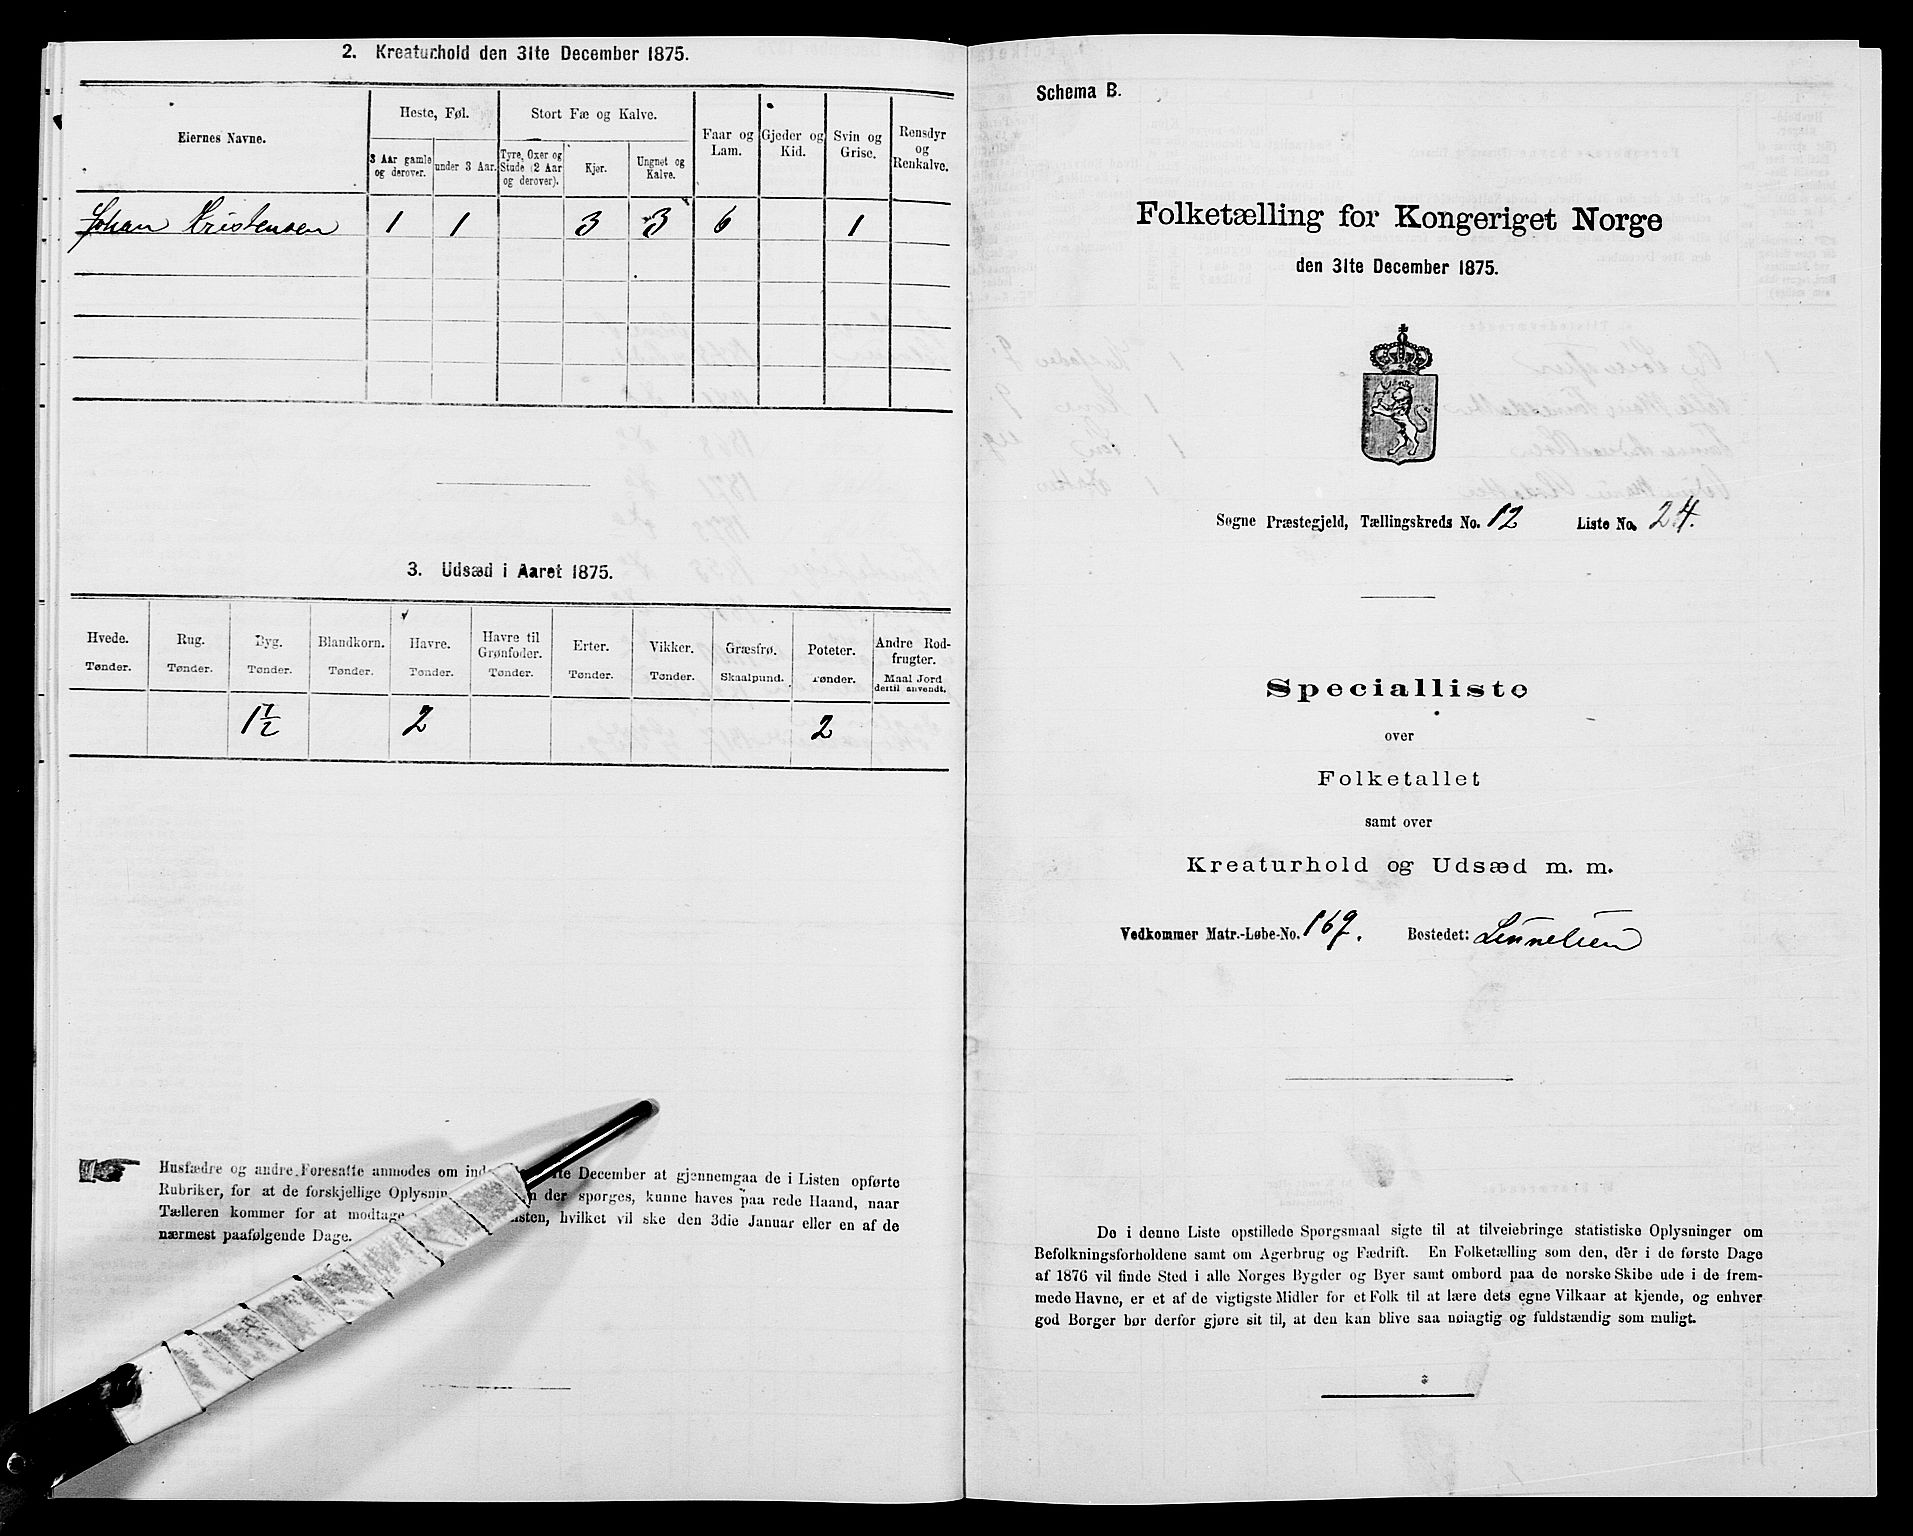 2. Kreaturhold den 31te December 1875.
Eiernes Navne.
Heste, Føl.
3 Aar gamle og derover.
under 3 Aar.
Stort Fæ og Kalve.
Tyre, Oxer og Stude (2 Aar og derover).
Kjør.
Ungnet og Kalve.
Faar og Lam.
Gjeder og Kid.
Svin og Grise.
Rensdyr og Renkalve.
Johan Kristensen 1 1 3 3 6 1
3. Udsæd i Aaret 1875.
Hvede. Rug. Byg. Blandkorn. Havre. Havre til Grønfoder. Erter. Vikker. Græsfrø. Poteter. Andre Rodfrugter.
Tønder. Tønder. Tønder. Tønder. Tønder. Tønder. Tønder. Tønder. Skaalpund. Tønder. Maal Jord dertil anvendt.
1 1/2 2 2
Husfædre og andre Foresatte anmodes om December at gjennemgaa de i Listen opførte
Rubriker, for at de forskjellige der spørges, kunne haves paa rede Haand, naar
Tælleren kommer for at modtage hvilket vil ske den 3die Januar eller en af de
nærmest paafølgende Dage.
Schema B.
Folketælling for Kongeriget Norge
den 31te December 1875.
Søgne Præstegjeld, Tællingskreds No. 12 Liste No. 24.
Specialliste
over
Folketallet
samt over
Kreaturhold og Udsæd m. m.
Vedkommer Matr.-Løbe-No. 167. Bostedet:
De i denne Liste opstillede Spørgsmaal sigte til at tilveiebringe statistiske Oplysninger om
Befolkningsforholdene samt om Agerbrug og Fædrift. En Folketælling som den, der i de første Dage
af 1876 vil finde Sted i alle Norges Bygder og Byer samt ombord paa de norske Skibe ude i de frem-
mede Havne, er et af de vigtigste Midler for et Folk til at lære dets egne Vilkaar at kjende, og enhver
god Borger bør derfor gjøre sit til, at den kan blive saa nøiagtig og fuldstændig som muligt.